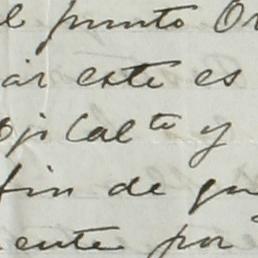 el punto Or
ar este es
oji Calte y
fin de qu
ente por